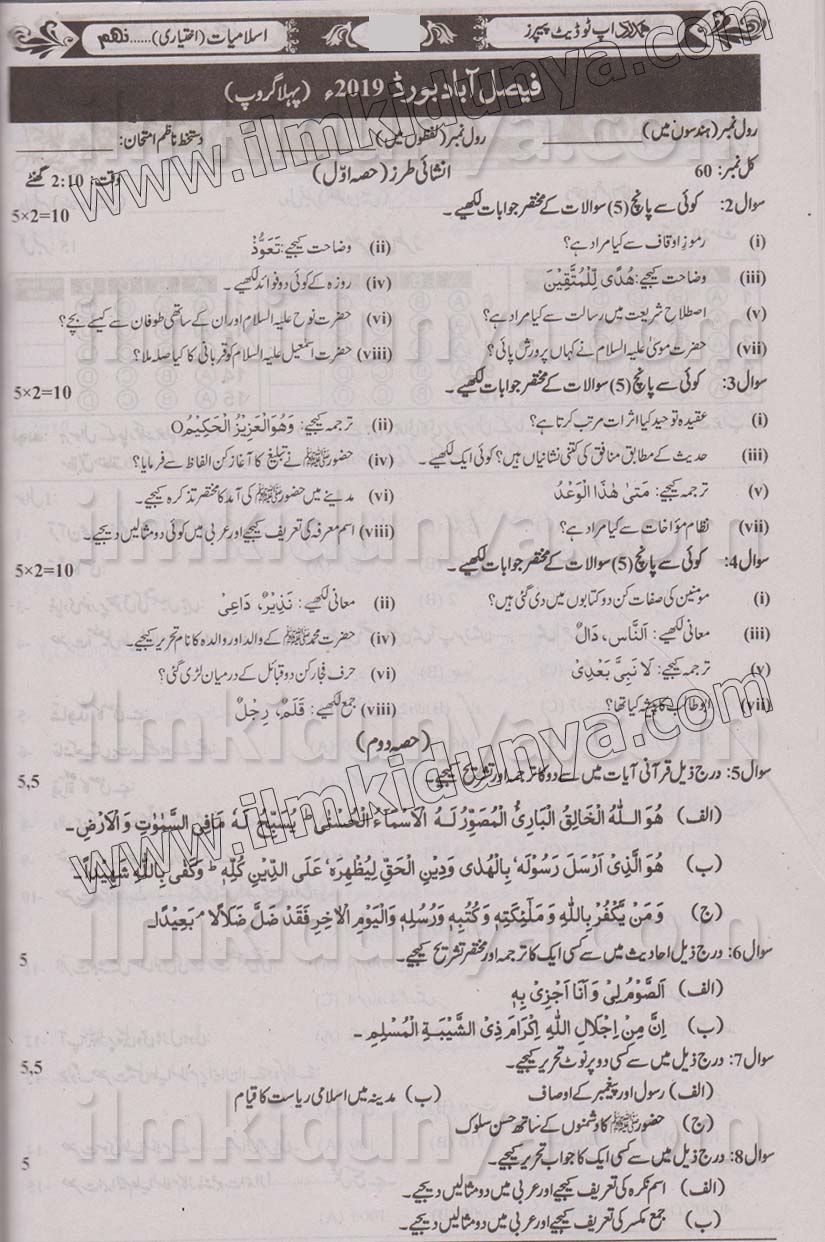 اسلامیات (اختیاری)......نہم
ہمدرد اپ ٹو ڈیٹ پیپرز
فیصل آباد بورڈ 2019ء (پہلا گروپ)
رول نمبر (ہندسوں میں) ________ رول نمبر (لفظوں میں) ________ دستخط ناظم امتحان: ________
کل نمبر: 60 انشائی طرز (حصہ اوّل) وقت: 2:10 گھنٹے
سوال 2: کوئی سے پانچ (5) سوالات کے مختصر جوابات لکھیے۔ 5×2=10
(i) رموز اوقاف سے کیا مراد ہے؟ (ii) وضاحت کیجیے: تَعَوُّذْ
(iii) وضاحت کیجیے: هُدًى لِّلْمُتَّقِيْنَ (iv) روزہ کے کوئی دو فوائد لکھیے۔
(v) اصطلاح شریعت میں رسالت سے کیا مراد ہے؟ (vi) حضرت نوح علیہ السلام اور ان کے ساتھی طوفان سے کیسے بچے؟
(vii) حضرت موسیٰ علیہ السلام نے کہاں پرورش پائی؟ (viii) حضرت اسمٰعیل علیہ السلام کو قربانی کا کیا صلہ ملا؟
سوال 3: کوئی سے پانچ (5) سوالات کے مختصر جوابات لکھیے۔ 5×2=10
(i) عقیدہ توحید کیا اثرات مرتب کرتا ہے؟ (ii) ترجمہ کیجیے: وَهُوَ الْعَزِيْزُ الْحَكِيْمُO
(iii) حدیث کے مطابق منافق کی کتنی نشانیاں ہیں؟ کوئی ایک لکھیے۔ (iv) حضور ﷺ نے تبلیغ کا آغاز کن الفاظ سے فرمایا؟
(v) ترجمہ کیجیے: مَتىٰ هٰذَا الْوَعْدُ (vi) مدینے میں حضور ﷺ کی آمد کا مختصر تذکرہ کیجیے۔
(vii) نظام مؤاخات سے کیا مراد ہے؟ (viii) اسم معرفہ کی تعریف کیجیے اور عربی میں کوئی دو مثالیں دیجیے۔
سوال 4: کوئی سے پانچ (5) سوالات کے مختصر جوابات لکھیے۔ 5×2=10
(i) مومنین کی صفات کن دو کتابوں میں دی گئی ہیں؟ (ii) معانی لکھیے: نَذِيْرٌ، دَاعِىْ
(iii) معانی لکھیے: اَلنَّاس، دَالٌ (iv) حضرت محمد ﷺ کے والد اور والدہ کا نام تحریر کیجیے۔
(v) ترجمہ کیجیے: لَا نَبِىَّ بَعْدِىْ (vi) حرف فجار کن دو قبائل کے درمیان لڑی گئی؟
(vii) ابو طالب کا پیشہ کیا تھا؟ (viii) جمع لکھیے: قَلَمٌ، رِجِلٌ
(حصہ دوم)
سوال 5: درج ذیل قرآنی آیات میں سے دو کا ترجمہ اور تشریح کیجیے۔ 5,5
(الف) هُوَ اللّٰهُ الْخَالِقُ الْبَارِئُ الْمُصَوِّرُ لَهُ الْاَسْمَآءُ الْحُسْنٰى ؕ يُسَبِّحُ لَهٗ مَافِى السَّمٰوٰتِ وَالْاَرْضِ۔
(ب) هُوَ الَّذِىْ اَرْسَلَ رَسُوْلَهٗ بِالْهُدٰى وَدِيْنِ الْحَقِّ لِيُظْهِرَهٗ عَلَى الدِّيْنِ كُلِّهٖ ؕ وَكَفٰى بِاللّٰهِ شَهِيْدًا۔
(ج) وَمَنْ يَّكْفُرْ بِاللّٰهِ وَمَلٰٓئِكَتِهٖ وَكُتُبِهٖ وَرُسُلِهٖ وَالْيَوْمِ الْاٰخِرِ فَقَدْ ضَلَّ ضَلَالًا ۢ بَعِيْدًا۔
سوال 6: درج ذیل احادیث میں سے کسی ایک کا ترجمہ اور مختصر تشریح کیجیے۔ 5
(الف) اَلصَّوْمُ لِىْ وَ اَنَا اَجْزِىْ بِهٖ
(ب) اِنَّ مِنْ اِجْلَالِ اللّٰهِ اِكْرَامَ ذِى الشَّيْبَةِ الْمُسْلِمِ۔
سوال 7: درج ذیل میں سے کسی دو پر نوٹ تحریر کیجیے۔ 5,5
(الف) رسول اور پیغمبر کے اوصاف (ب) مدینہ میں اسلامی ریاست کا قیام
(ج) حضور ﷺ کا دشمنوں کے ساتھ حسن سلوک
سوال 8: درج ذیل میں سے کسی ایک کا جواب تحریر کیجیے۔ 5
(الف) اسم نکرہ کی تعریف کیجیے اور عربی میں دو مثالیں دیجیے۔
(ب) جمع مکسر کی تعریف کیجیے اور عربی میں دو مثالیں دیجیے۔
www.ilmkidunya.com
www.ilmkidunya.com
ilmkidunya.com
ilmkidunya.com
ilmkidunya.com
ilmkidunya.com
ilmkidunya.com
ilmkidunya.com